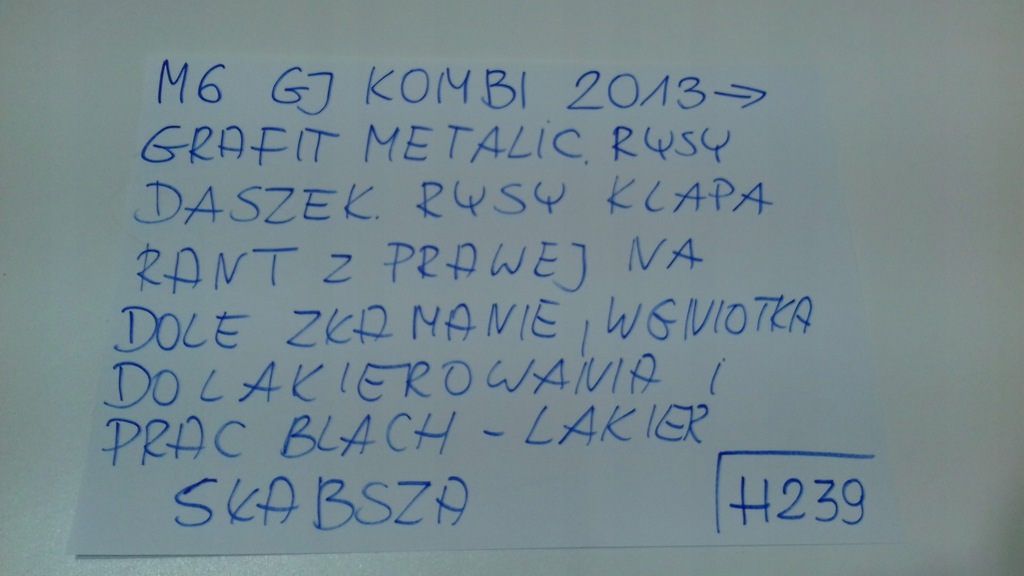 M6 GJ KOMBI 2013→
GRAFIT METALIC. RYSY
DASZEK. RYSY KLAPA
RANT Z PRAWEJ NA
DOLE ZŁAMANIE, WGNIOTKA
DO LAKIEROWANIA I
PRAC BLACH - LAKIER
SŁABSZA
H239